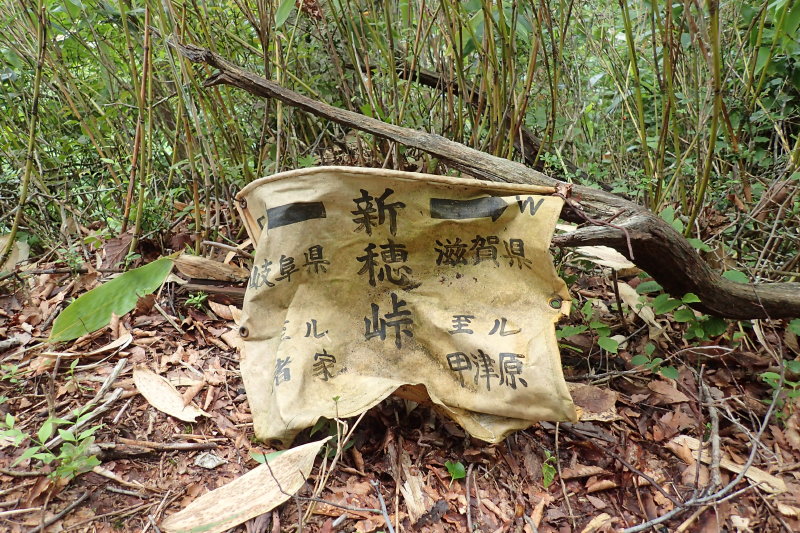 新穂峠
W
岐阜県
滋賀県
至ル
者家
至ル
甲津原